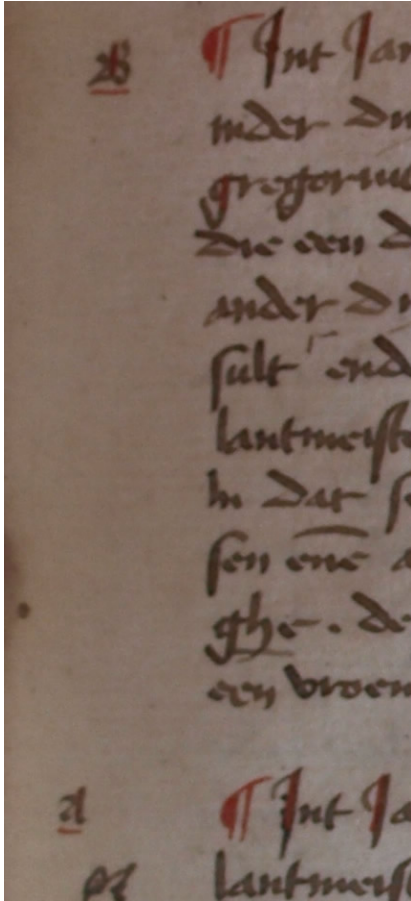 B ¶ Int Jar
inder du
gregorius
die een d
ander du
sult end
lantmeiste
In dat s
sen ene a
ghe . de
een vroem
a ¶ Int Ja
lantmeist